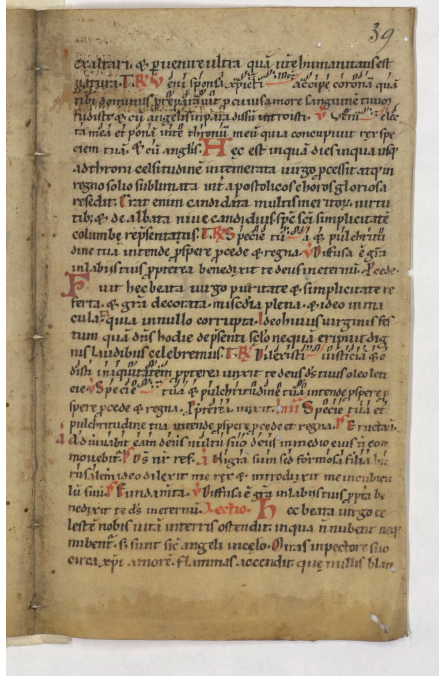 39
exaltari. & puenire ultra quā vite humanitatis est
natura. T. R͞ Veni sponsa xp̄i accipe coronā quā
tibi dominus preparavit p cuius amore sanguinē tuum
fudisti & cū angelis in paradisum introisti. V Veni elec
ta mea et ponā in te thronū meū quia concupivit rex spe
ciem tuā. & cū anglis. Hec est inquā dies in qua usq;
ad throni celsitudinē intemerata virgo pcessit atq; in
regno solio sublimata int apostolicos choros gloriosa
resedit. Erat enim candidata multis meritor; virtu
tib; & de albata nive candidius. spē sci simplicitate
columbe repsentatus. T. R͞ Specie tua & pulchritu
dine tua intende pspere pcede & regna. V Diffusa ē gr̄a
in labiis tuis ppterea benedixit te deus in eternū. Pcede.
Fuit hec beata virgo puritate & simplicitate re
ferta. & gr̄a decorata. misc̄dia plena. & ideo inma
cula. quia in nullo corrupta. Ideo huius virginis fes
tum quā dn̄s hodie de psenti selo nequā eripuit dig
nis laudibus celebremus. T. R͞ Dilexisti iusticiā & o
disti iniquitatem ppterea unxit te deus ds tuus oleo leti
cie. V Specie tua & pulchritudine tua intende pspere p
spere pcede & regna. Ppterea unxit. Specie tua et
pulchritudine tua intende pspere pcede et regna. Eructavit.
Adiuvabit eam deus vultu suo deus in medio eius n̄ com
movebit. Ds nr̄ ref. Nigra sum sed formosa filia hie
rusalem ideo dilexit me rex & introduxit me in cubicu
lū suū. Fundamta. V Diffusa ē gr̄a in labiis tuis. ppea be
nedixit te ds in eternū. Lectio. Hec beata virgo ce
lestē nobis vitā in terris ostendit. in qua n̄ nubent neq;
nubent. s; sunt sic angeli in celo. Duras in pectore suo
circa xpi amorē flammas accendit que nullis blan